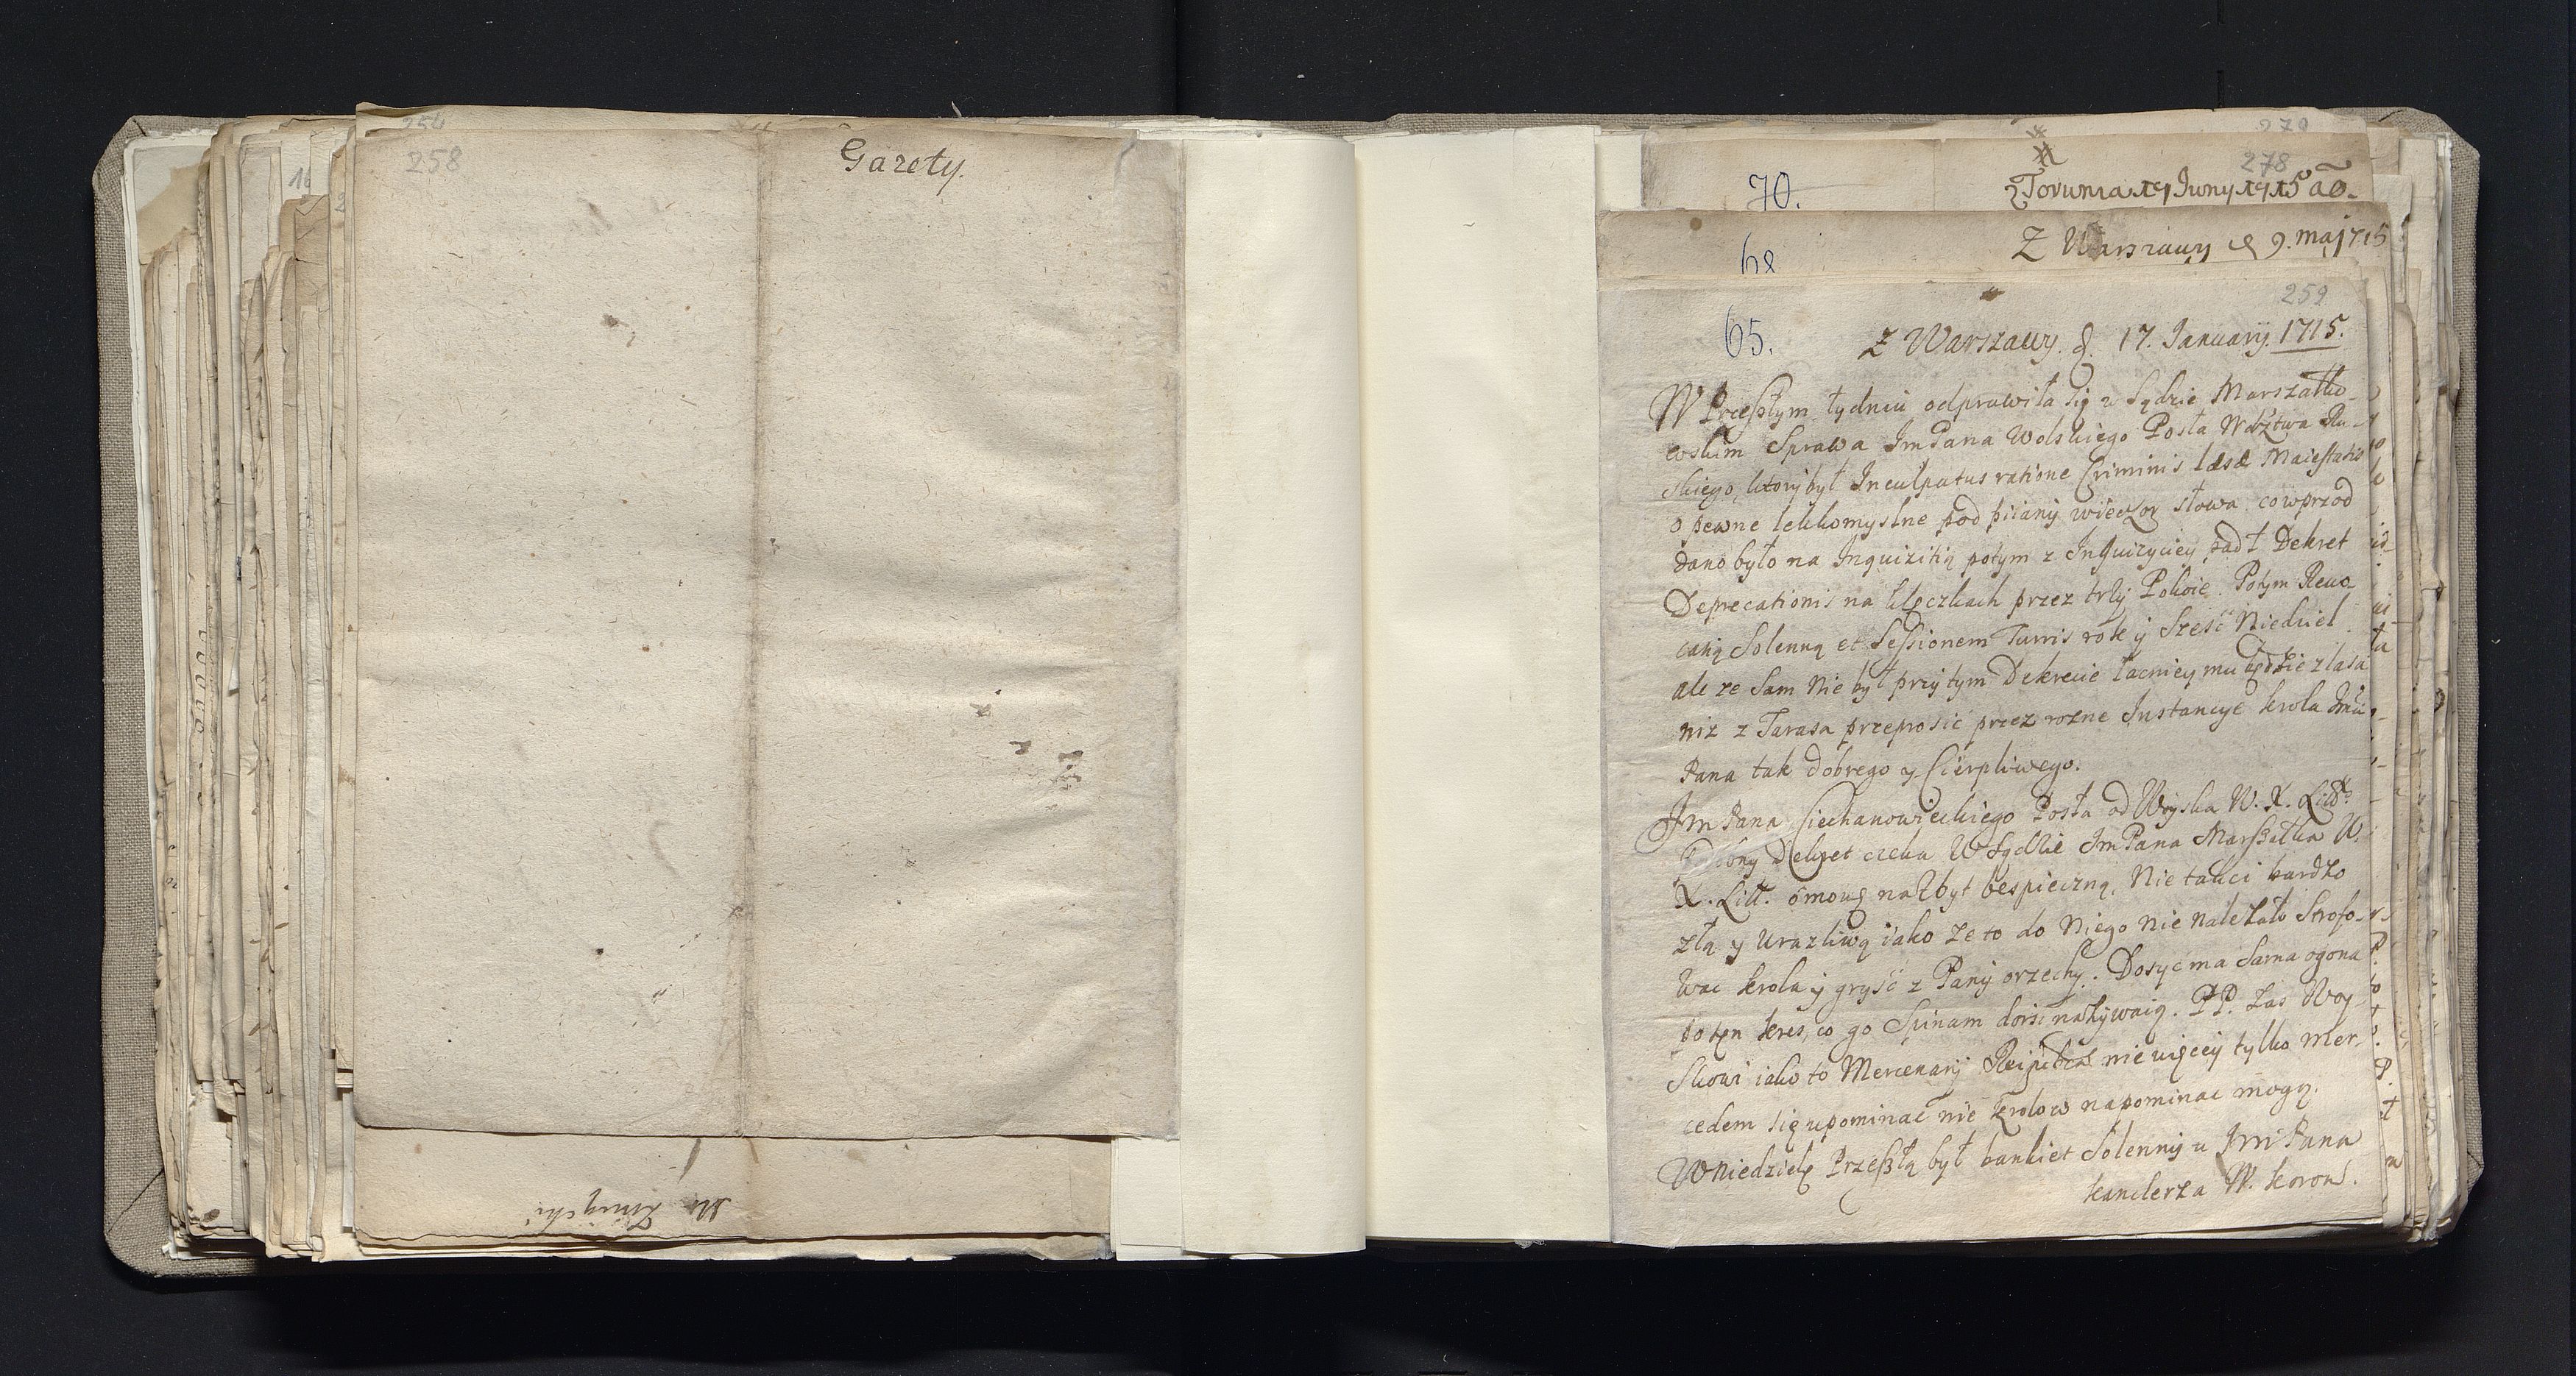 258
Gazety.
279
278
70.
z Torunia 19 Juny 1715 ao.
68
Z Warszawy d 9. maj 715
259
65.
Z Warszawy. d. 17. Januarij. 1715.
W Przeszłym tydniu odprawiła się w Sądzie Marszałko-
wskim Sprawa JmPana Wolskiego Posła Wdztwa Ru-
skiego, ktory był Inculpatus ratione Criminis læsæ Maiestatis
o pewne lekkomyslne pod piiany wieczor słowa. co wprzod
dano było na Inquizitią potym z Inquizyciey padł Dekret
Deprecationis na klęczkach przez trzy Pokoie. Potym Revo
catią Solenną et Sessionem Turris rok y Sześć Niedziel
ale ze Sam Nie był przy tym Dekrecie łacniey mu będzie z lasa
niz z Tarasa przeprosić przez rozne Instancye krola Jmći
Pana tak dobrego y Cierpliwego.
JmPana Ciechanowieckiego Posła od Woyska W. X. Litt.
podobny Dekret czeka W Sądzie JmPana Marszałka W.
X. Litt. o mowę nazbyt bespieczną, Nie tak ci bardzo
złą y urazliwą iako ze to do Niego nie nalezało Strofo-
wac krola y gryść z Pany orzechy. Dosyc ma Sarna ogona
po ten kres, co go Spinam dorsi nazywaią. PP. zas Woy-
skowi iako to Mercenarij Reipublicæ nie więcey tylko mer-
cedem się upominac nie krolow napominac mogą.
W Niedzielę Przeszłą był bankiet Solenny u Jm Pana
kanclerza W. koron.